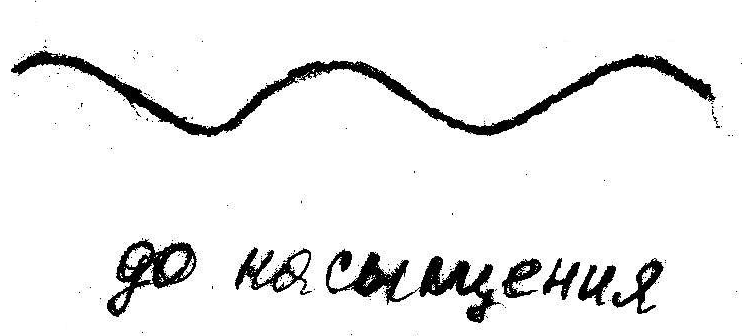 до насыщения